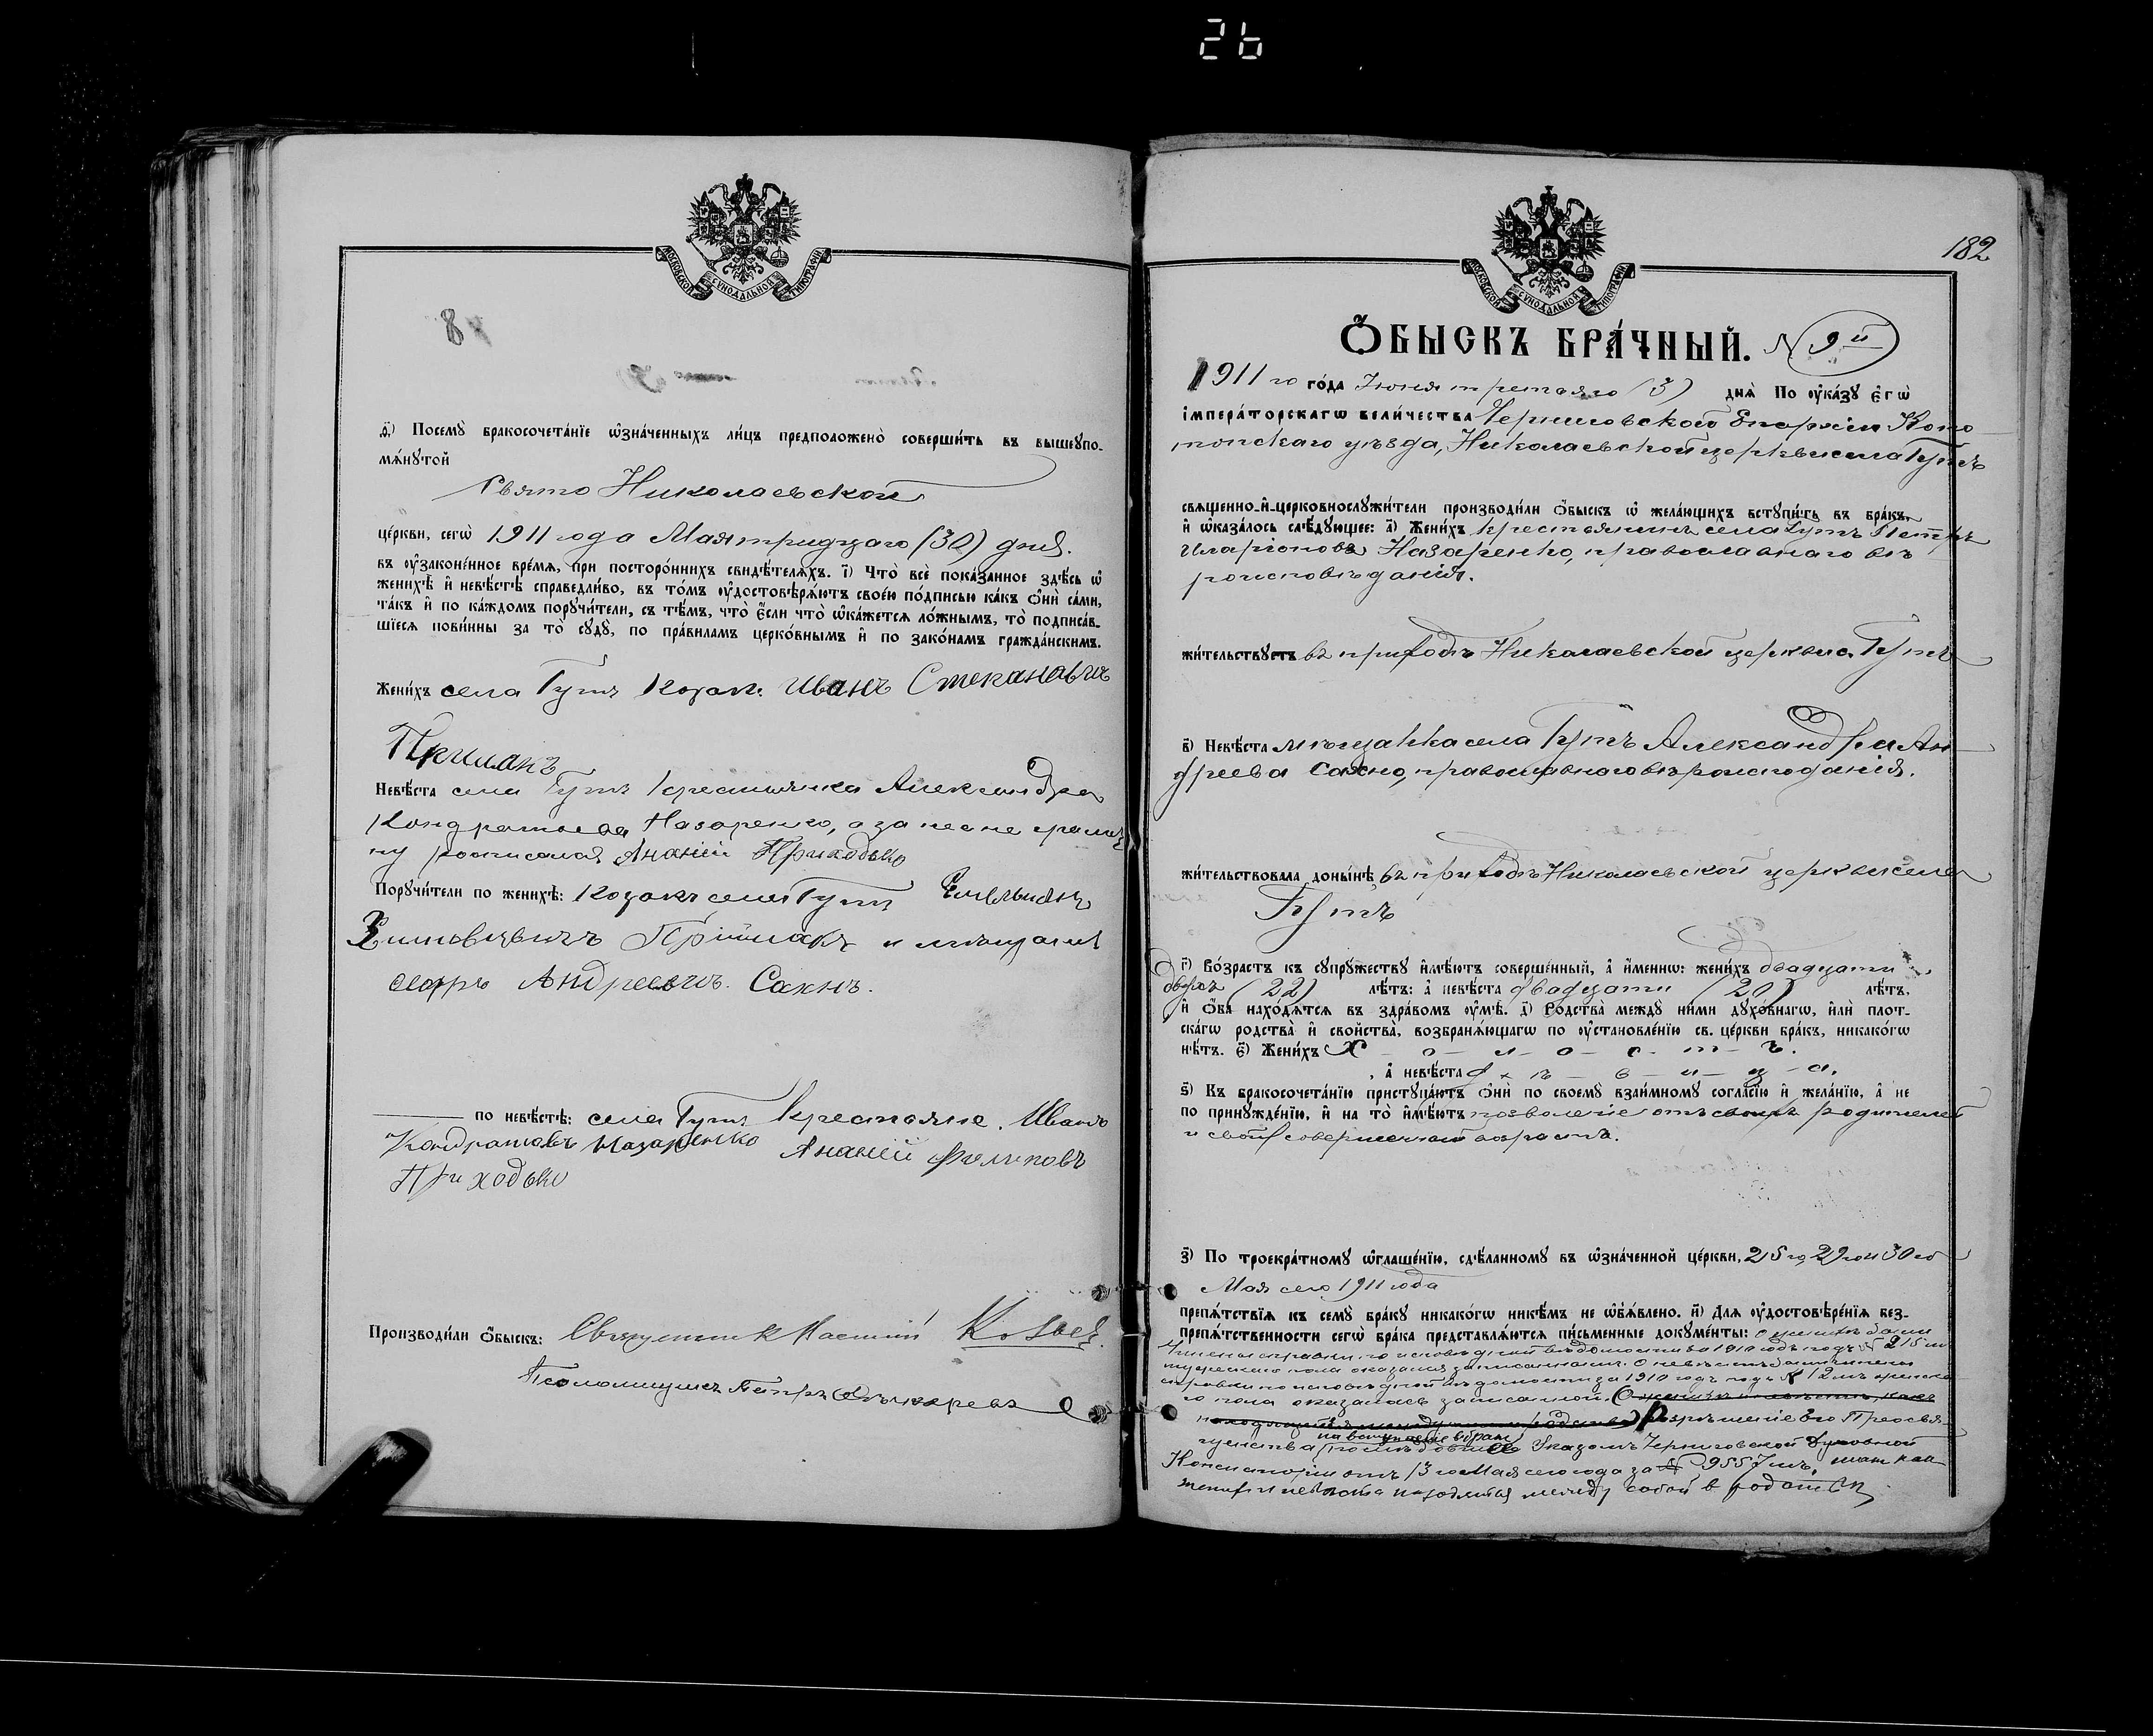 26
МОСКОВСКОЙ СѴНОДАЛЬНОЙ ТИПОГРАФІИ
8
ѳ҃) Посемꙋ̀ бракосочета́нїе ѡ҆зна́ченныхъ ли́цъ предположено̀ соверши́ть въ вышеꙋпо-
мѧ́нꙋтой
Свято Николаевской
це́ркви, сегѡ̀ 1911 года Мая тридцаго (30) дня.
въ ᲂу҆зако́ненное вре́мѧ, при посторо́ннихъ свидѣ́телѧхъ. і҃) Что̀ всѐ пока́занное здѣ́сь ѡ҆
женихѣ̀ и҆ невѣ́стѣ справедли́во, въ то́мъ ᲂу҆достовѣрѧ́ютъ свое́ю по́дписью ка́къ ѻ҆нѝ са́ми,
та́къ и҆ по ка́ждомъ порꙋчи́тели, съ тѣ́мъ, что̀ є҆́сли что̀ ѡ҆ка́жетсѧ ло́жнымъ, то̀ подписа́в-
шїесѧ пови́нны за то̀ сꙋдꙋ̀, по пра́виламъ церко́внымъ и҆ по зако́намъ гражда́нскимъ.
Жени́хъ села Гутъ Козак. Иванъ
Невѣ́ста села Гутъ крестьянка Александра
Кондратьева Назаренко, а за нее не грамот
ну росписался Ананій Приходько
Порꙋчи́тели по женихѣ̀: Козакъ села Гутъ Емельянъ
Приймакъ и мещанинъ
Андреевъ. Сахнъ.
по невѣ́стѣ: села Гутъ Крестьяне. Иванъ
Кондратовъ Назаренко Ананій Филиповъ
Приходько
Производи́ли ѻ҆́быскъ: Священник
Псаломщикъ Петръ
182
МОСКОВСКОЙ СѴНОДАЛЬНОЙ ТИПОГРАФІИ
Ѻ҆́БЫСКЪ БРА́ЧНЫЙ. N 9й
1911 го го́да Июня третьяго (3) днѧ̀ По ᲂу҆ка́зꙋ є҆гѡ̀
і҆мпера́торскагѡ вели́чества Черниговской Епархіи Коно
топскаго уѣзда, Николаевской церкви села Гутъ
свѧщенно-и҆-церковнослꙋжи́тели производи́ли ѻ҆́быскъ ѡ҆ жела́ющихъ встꙋпи́ть въ бра́къ,
и҆ ѡ҆каза́лось слѣ́дꙋющее: а҃) Жени́хъ крестьянинъ села Гутъ Петръ
Иларіоновъ Назаренко, православнаго вѣ
роисповѣданія.
жи́тельствꙋетъ въ приходѣ Николаевской церкви с. Гутъ
в҃) Невѣ́ста мѣщанка села Гутъ Александра Ан
дреева Сахно, православнаго вѣроисповѣданія.
жи́тельствовала доны́нѣ, въ приходѣ Николаевской церкви села
Гутъ
г҃) Во́зрастъ къ сꙋпрꙋ́жествꙋ и҆мѣ́ютъ соверше́нный, а҆ и҆́меннѡ: жени́хъ двадцати
двухъ (22) лѣ́тъ: а҆ невѣ́ста двадцати (20) лѣ́тъ,
и҆ ѻ҆́ба нахо́дѧтсѧ въ здра́вомъ ᲂу҆мѣ̀. д҃) Родства̀ междꙋ̀ ни́ми дꙋхо́внагѡ, и҆лѝ плот-
ска́гѡ родства̀ и҆ свойства̀, возбранѧ́ющагѡ по ᲂу҆становле́нїю св. це́ркви бра́къ, никако́гѡ
нѣ́тъ. є҃) Жени́хъ Х - о - л - о - с - т - ъ.
, а҆ невѣ́ста д - ѣ - в - и - ц - а.
ѕ҃) Къ бракосочета́нїю пристꙋпа́ютъ ѻ҆нѝ по своемꙋ̀ взаи́мномꙋ согла́сїю и҆ жела́нїю, а҆ не
по принꙋжде́нїю, и҆ на то̀ и҆мѣ́ютъ позволеніе отъ своихъ родителей
и свой совершенный возрастъ.
з҃) По троекра́тномꙋ ѡ҆глаше́нїю, сдѣ́ланномꙋ въ ѡ҆зна́ченной це́ркви, 25 го, 29 го и 30 го
Мая сего 1911 года
препѧ́тствїѧ къ семꙋ̀ бра́кꙋ никако́гѡ никѣ́мъ не ѡ҆б̾ѧ́влено. и҃) Длѧ ᲂу҆достовѣре́нїѧ без-
препѧ́тственности сегѡ̀ бра́ка представлѧ́ютсѧ пи́сьменные докꙋме́нты: о женихѣ
справки по исповѣдной вѣдомости за 1910 годъ подъ N 215 м
мужескаго пола оказался записаннымъ. О невѣстѣ
справки по исповѣдной вѣдомости за 1910 годъ подъ N 12 мъ женска
го пола оказалась записанной.
Разрѣшеніе Его Преосвя-
щенства на вступленіе в бракъ послѣдовало Указомъ Черниговской Духовной
Консисторіи отъ 13 го Мая сего года за N 9557 мъ, так как
жених и невѣста находятся между собой в родствѣ